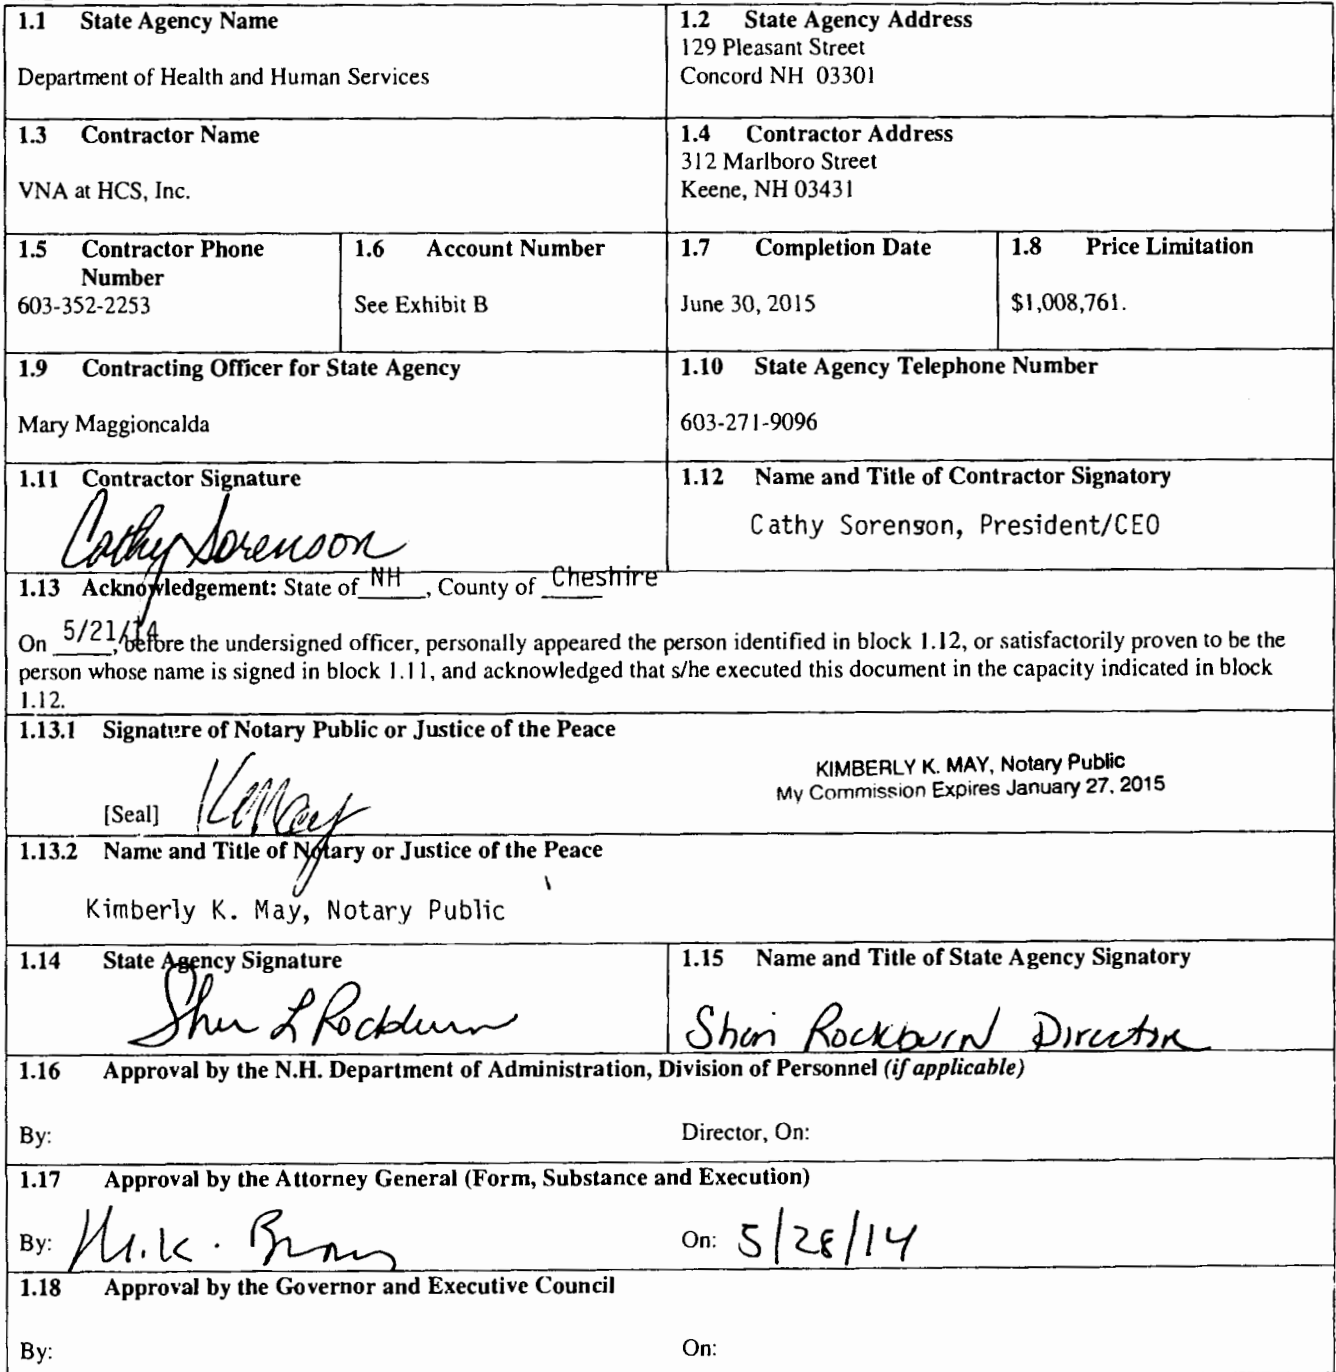 1.1 State Agency Name
Department of Health and Human Services
1.2 State Agency Address
129 Pleasant Street
Concord NH 03301
1.3 Contractor Name
VNA at HCS, Inc.
1.4 Contractor Address
312 Marlboro Street
Keene, NH 03431
1.5 Contractor Phone
Number
603-352-2253
1.6 Account Number
See Exhibit B
1.7 Completion Date
June 30, 2015
1.8 Price Limitation
$1,008,761.
1.9 Contracting Officer for State Agency
Mary Maggioncalda
1.10 State Agency Telephone Number
603-271-9096
1.11 Contractor Signature
Cathy Sorenson
1.12 Name and Title of Contractor Signatory
Cathy Sorenson, President/CEO
1.13 Acknowledgement: State of NH, County of Cheshire
On 5/21/14, before the undersigned officer, personally appeared the person identified in block 1.12, or satisfactorily proven to be the
person whose name is signed in block 1.11, and acknowledged that s/he executed this document in the capacity indicated in block
1.12.
1.13.1 Signature of Notary Public or Justice of the Peace
KIMBERLY K. MAY, Notary Public
My Commission Expires January 27, 2015
[Seal] KKMay
1.13.2 Name and Title of Notary or Justice of the Peace
Kimberly K. May, Notary Public
1.14 State Agency Signature
Sheri L Rockburn
1.15 Name and Title of State Agency Signatory
Sheri Rockburn Director
1.16 Approval by the N.H. Department of Administration, Division of Personnel (if applicable)
By:
Director, On:
1.17 Approval by the Attorney General (Form, Substance and Execution)
By: M.K. Brown
On: 5/28/14
1.18 Approval by the Governor and Executive Council
By:
On: